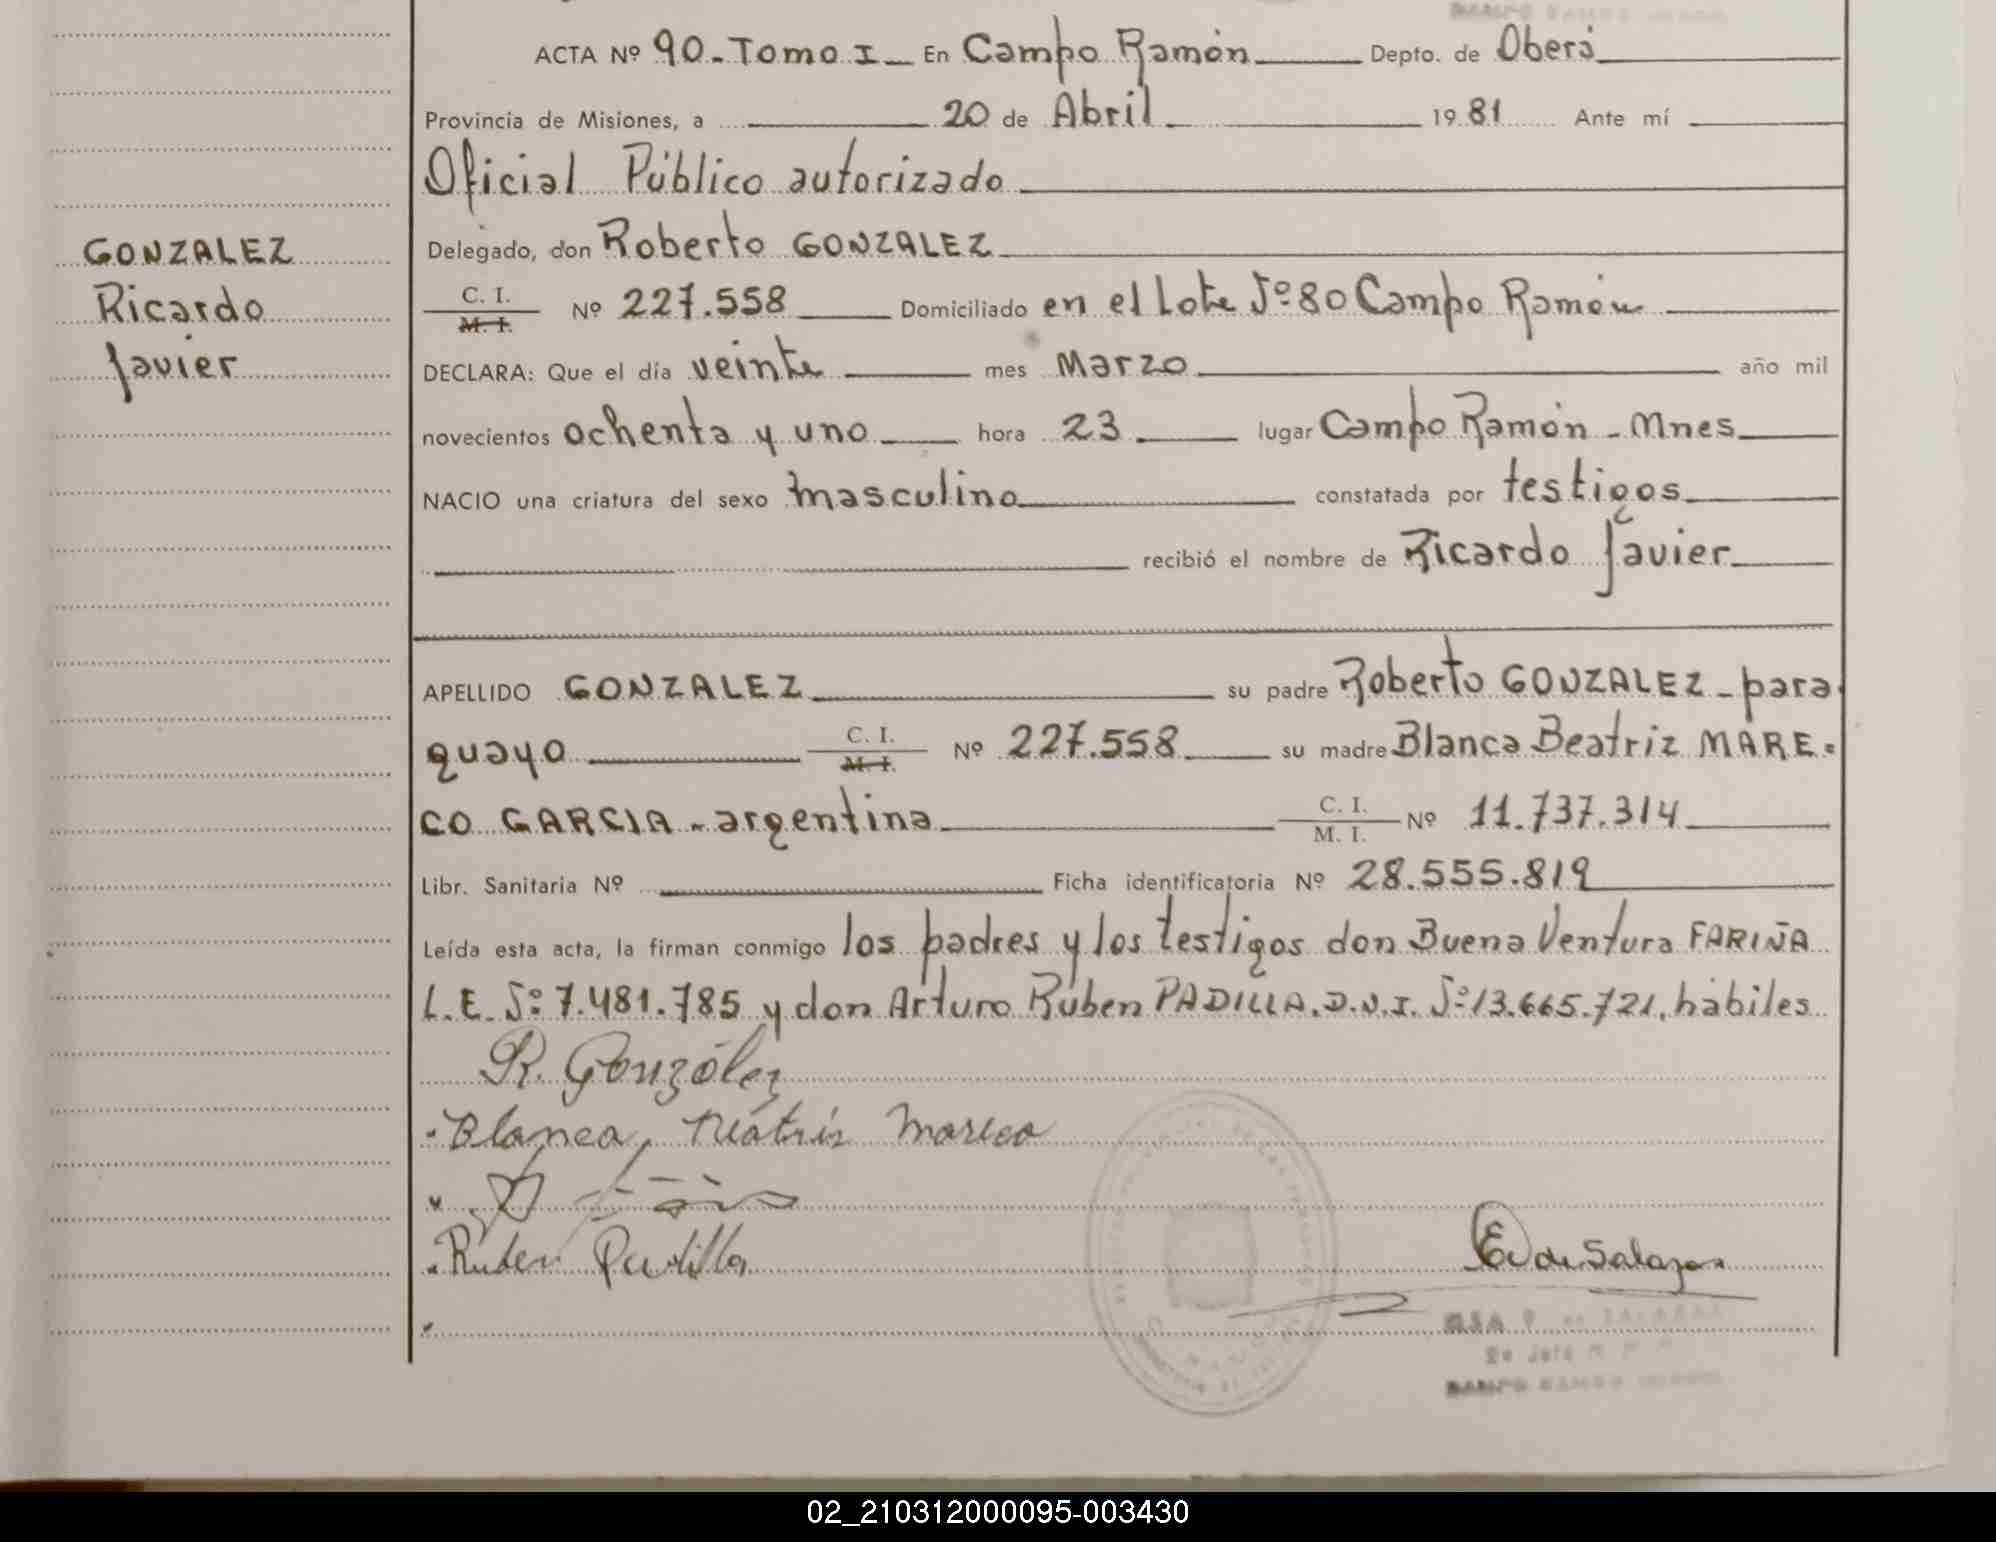 ACTA Nº 90 - Tomo I - En Campo Ramón Depto. de Oberá
Provincia de Misiones, a 20 de Abril 1981 Ante mí
Oficial Público autorizado
Delegado, don Roberto GONZALEZ
GONZALEZ
Ricardo
Javier
C. I.
M. I. Nº 227.558 Domiciliado en el Lote Nº 80 Campo Ramón
DECLARA: Que el día veinte mes Marzo año mil
novecientos ochenta y uno hora 23 lugar Campo Ramón - Mnes
NACIO una criatura del sexo masculino constatada por testigos
recibió el nombre de Ricardo Javier
APELLIDO GONZALEZ su padre Roberto GONZALEZ - para
guayo C. I. M. I. Nº 227.558 su madre Blanca Beatriz MARE=
CO GARCIA - argentina C. I. M. I. Nº 11.737.314
Libr. Sanitaria Nº Ficha identificatoria Nº 28.555.819
Leída esta acta, la firman conmigo los padres y los testigos don Buena Ventura FARIÑA
L.E. Nº 7.481.785 y don Arturo Rúben PADILLA. D.N.I. Nº 13.665.721, hábiles
R. González
Blanca Mareco
Ruben Padilla
E. de Salazar
02_210312000095-003430